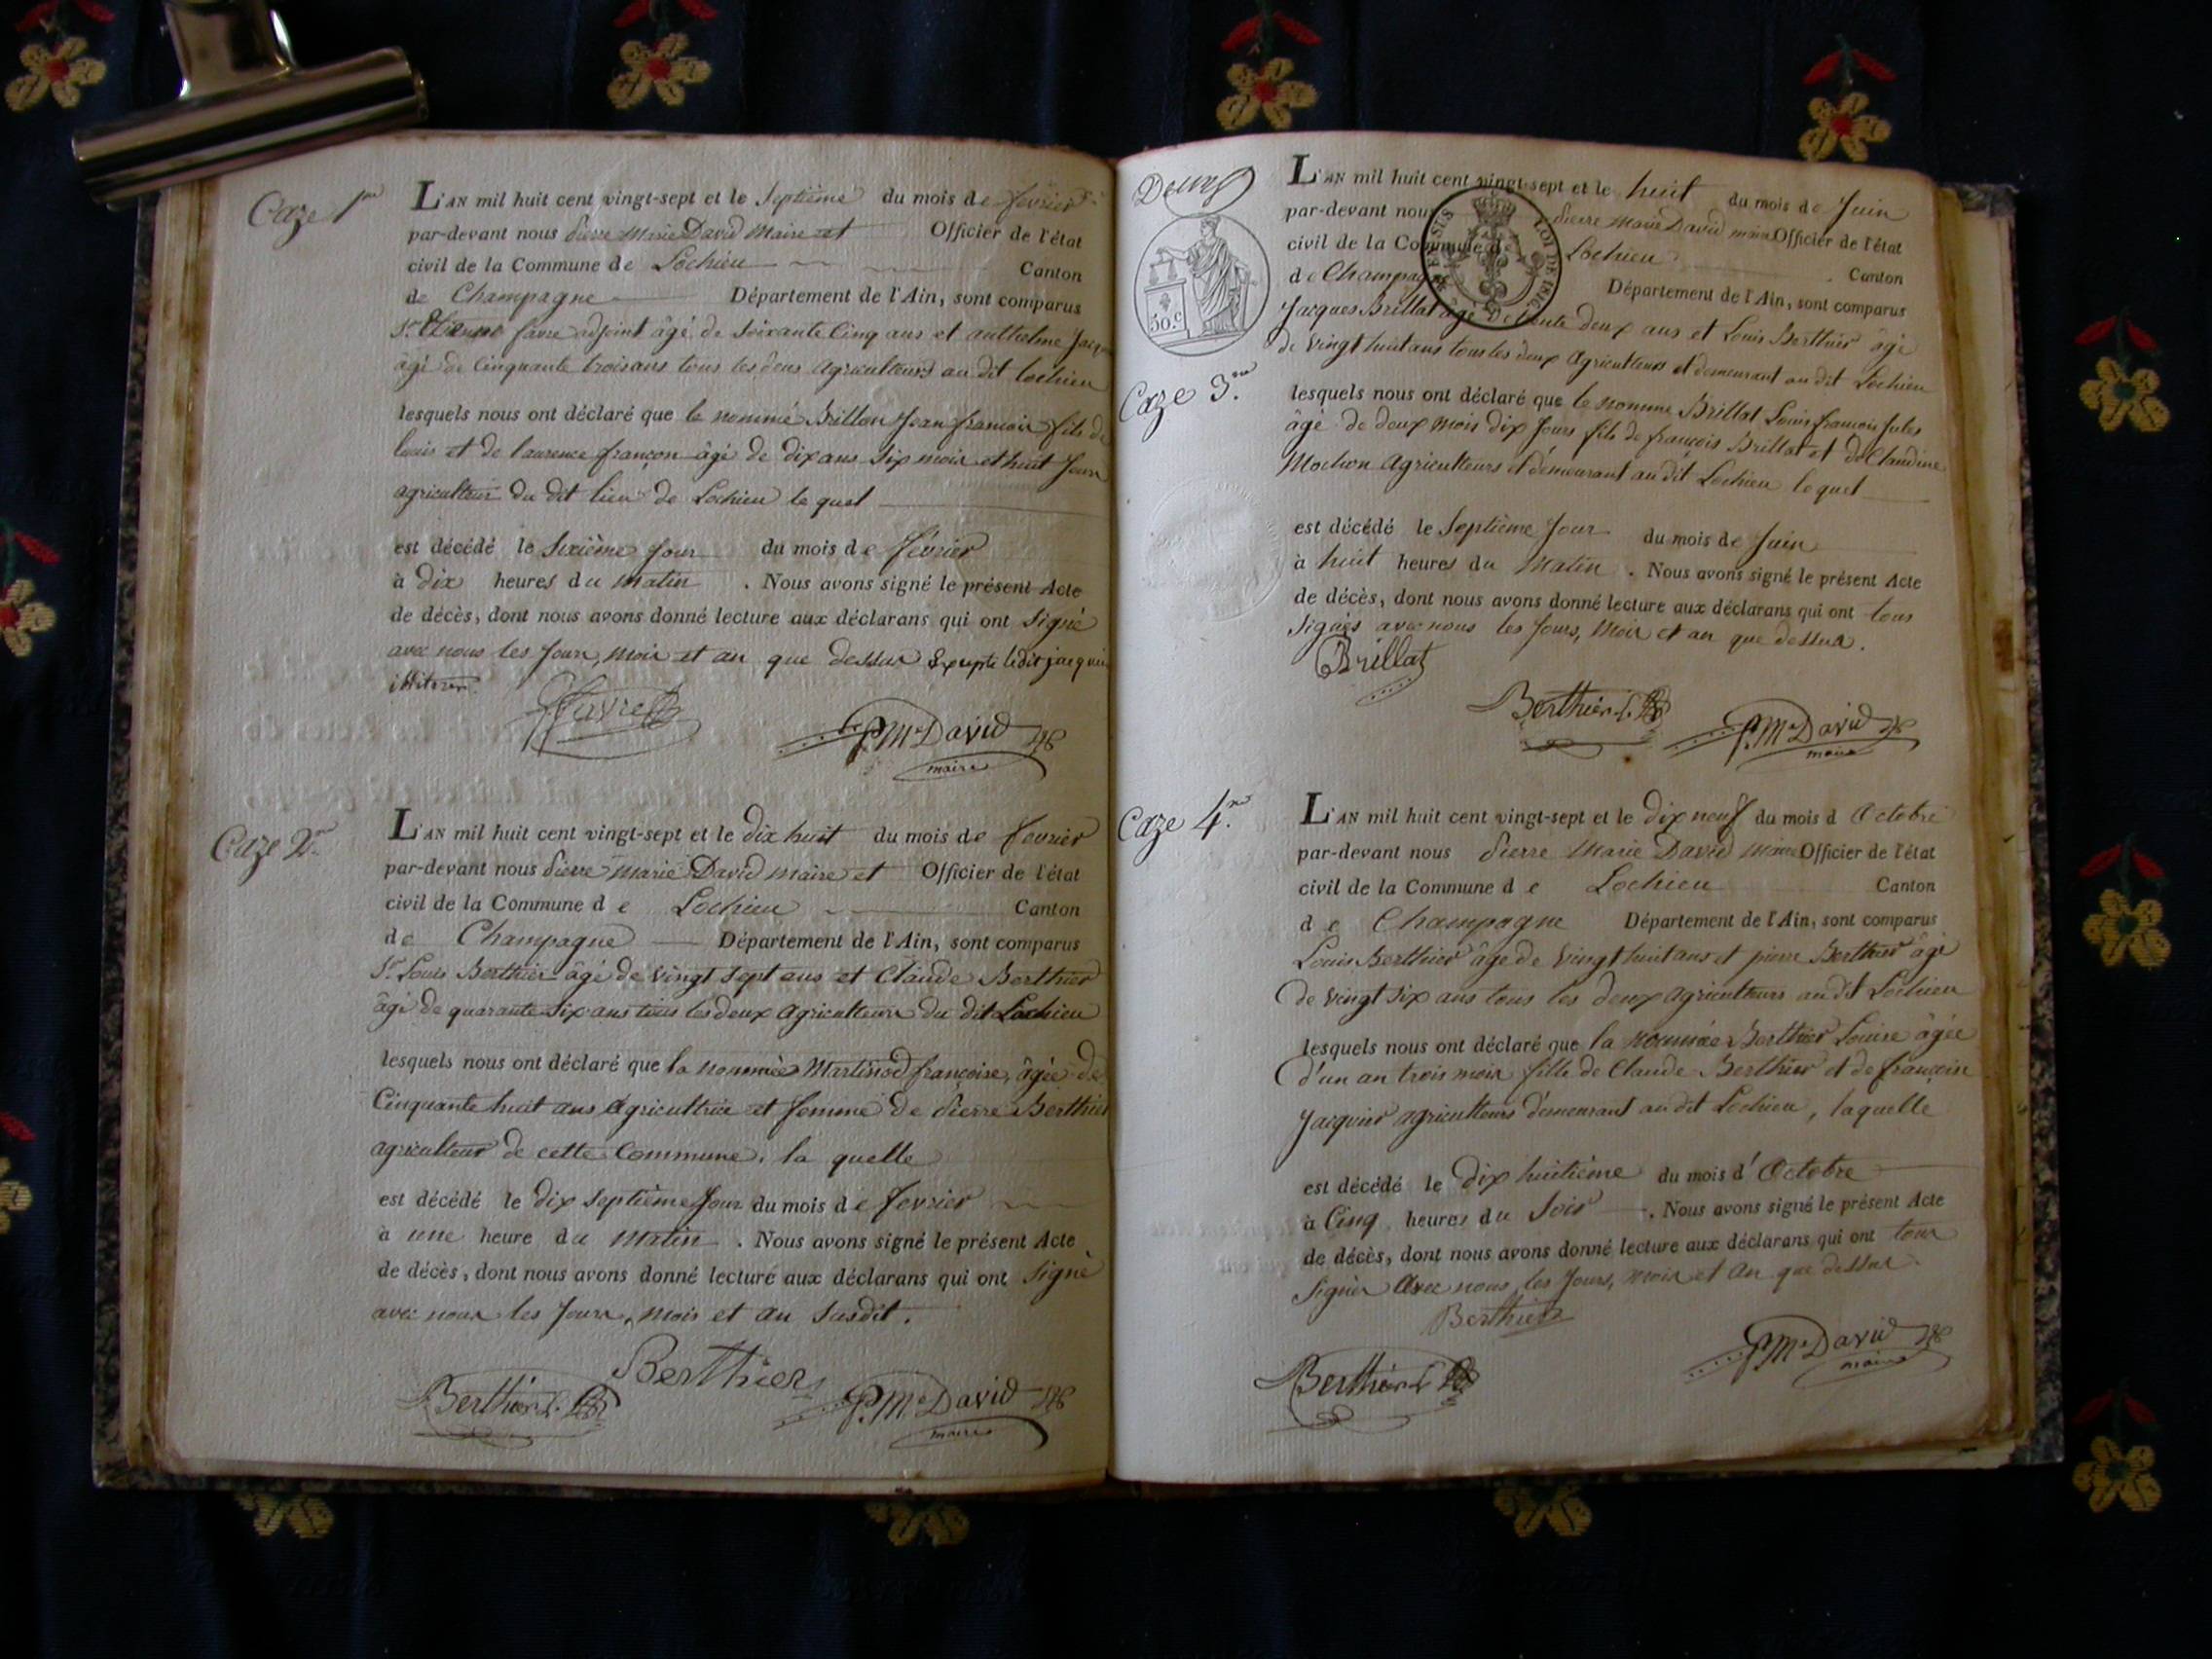 Caze 1re
L'AN mil huit cent vingt-sept et le Septième du mois de février
par-devant nous Pierre Marie David Maire et Officier de l'état
civil de la Commune de Lochieu Canton
de Champagne Département de l'Ain, sont comparus
Sr. favre adjoint âgé de Soixante Cinq ans et anthelme
âgé de Cinquante trois ans tous les deux Agriculteurs au dit Lochieu
lesquels nous ont déclaré que le nommé Brillon Jean francois fils de
louis et de laurence françon âgé de dix ans Six mois et huit Jours
agriculteur du dit lieu de Lochieu le quel
est décédé le Sixième Jour du mois de février
à Dix heures du matin . Nous avons signé le présent Acte
de décès, dont nous avons donné lecture aux déclarans qui ont Signé
avec nous les Jours, Mois et an que dessus Excepté ledit jacquin
illiteré.
Favre
P. M. David
maire
Caze 2e
L'AN mil huit cent vingt-sept et le dix huit du mois de fevrier
par-devant nous Pierre Marie David Maire et Officier de l'état
civil de la Commune de Lochieu Canton
de Champagne Département de l'Ain, sont comparus
Sr. Louis Berthier âgé de vingt Sept ans et Claude Berthier
âgé de quarante Six ans tous les deux Agriculteurs du dit Lochieu
lesquels nous ont déclaré que la nommée Martinod françoise, âgée de
Cinquante huit ans Agricultrice et femme de Pierre Berthier
agriculteur de cette Commune, la quelle
est décédé le dix Septième Jour du mois de fevrier
à une heure du Matin . Nous avons signé le présent Acte
de décès, dont nous avons donné lecture aux déclarans qui ont Signé
avec nous les Jours, Mois et an Susdit.
Berthier
Berthier L.
P. M. David
maire
Deux
50.c
LOI DE 1816
Caze 3me
L'AN mil huit cent vingt-sept et le huit du mois de Juin
par-devant nous Pierre Marie David maire Officier de l'état
civil de la Commune de Lochieu Canton
de Champagne Département de l'Ain, sont comparus
Jacques Brillat âgé de trente deux ans et Louis Berthier âgé
de vingt huit ans tous les deux Agriculteurs et demeurant au dit Lochieu
lesquels nous ont déclaré que le nomme Brillat Louis francois Jules
âgé de deux Mois dix Jours fils de françois Brillat et de Claudine
Mochon Agriculteurs et demeurant au dit Lochieu le quel
est décédé le Septième Jour du mois de Juin
à huit heures du Matin . Nous avons signé le présent Acte
de décès, dont nous avons donné lecture aux déclarans qui ont tous
Signés avec nous les Jours, Mois et an que dessus.
Brillat
Berthier L.
P. M. David
maire
Caze 4e
L'AN mil huit cent vingt-sept et le Dix neuf du mois d Octobre
par-devant nous Pierre Marie David Maire Officier de l'état
civil de la Commune de Lochieu Canton
de Champagne Département de l'Ain, sont comparus
Louis Berthier âgé de vingt huit ans et pierre Berthier âgé
de vingt Six ans tous les deux agriculteurs au dit Lochieu
lesquels nous ont déclaré que la nommée Berthier Louise âgée
d'un an trois mois fille de Claude Berthier et de françoise
Jacquier agriculteurs demeurant au dit Lochieu, laquelle
est décédé le Dix huitième du mois d'Octobre
à Cinq heures du Soir . Nous avons signé le présent Acte
de décès, dont nous avons donné lecture aux déclarans qui ont tous
Signés Avec nous les Jours, Mois et An que dessus
Berthier
Berthier L.
P. M. David
maire